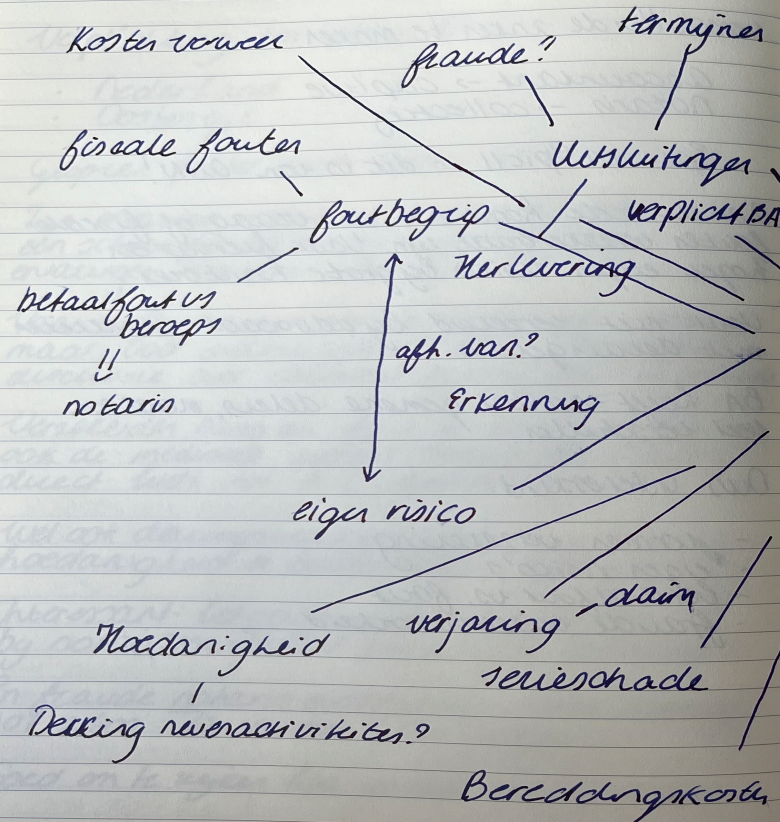 termijnen
Kosten verweer
fraude?
fiscale fouten
Uitsluitingen
foutbegrip
verplicht BA
Herlevering
betaalfout vs
beroeps
notaris
afh. van?
Erkenning
eigen risico
claim
verjaring
Hoedanigheid
serieschade
Dekking nevenactiviteiten?
Bereddingskosten